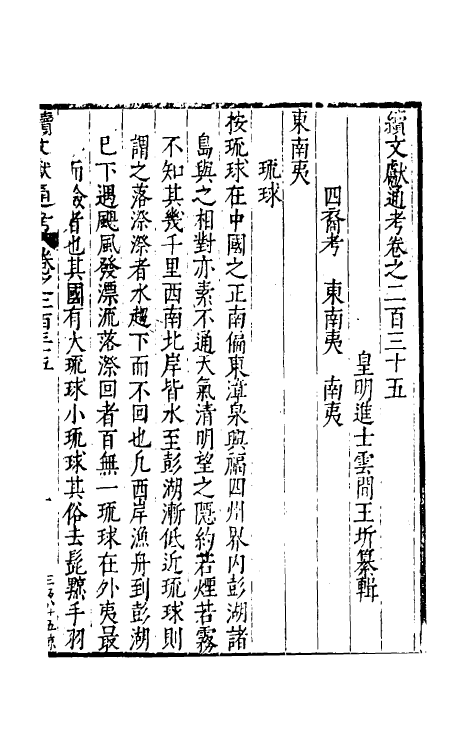 續文獻通考卷之二百三十五
皇明進士雲間王圻纂輯
四裔考　東南夷　南夷
東南夷
琉球
按琉球在中國之正南偏東漳泉興福四州界內彭湖諸
島與之相對亦素不通天氣清明望之隱約若煙若霧
不知其幾千里西南北岸皆水至彭湖漸低近琉球則
謂之落漈漈者水趨下而不回也凡西岸漁舟到彭湖
已下遇颶風發漂流落漈回者百無一琉球在外夷最
而險者也其國有大琉球小琉球其俗去髭黥手羽
續文獻通考　卷之二百三十五　一